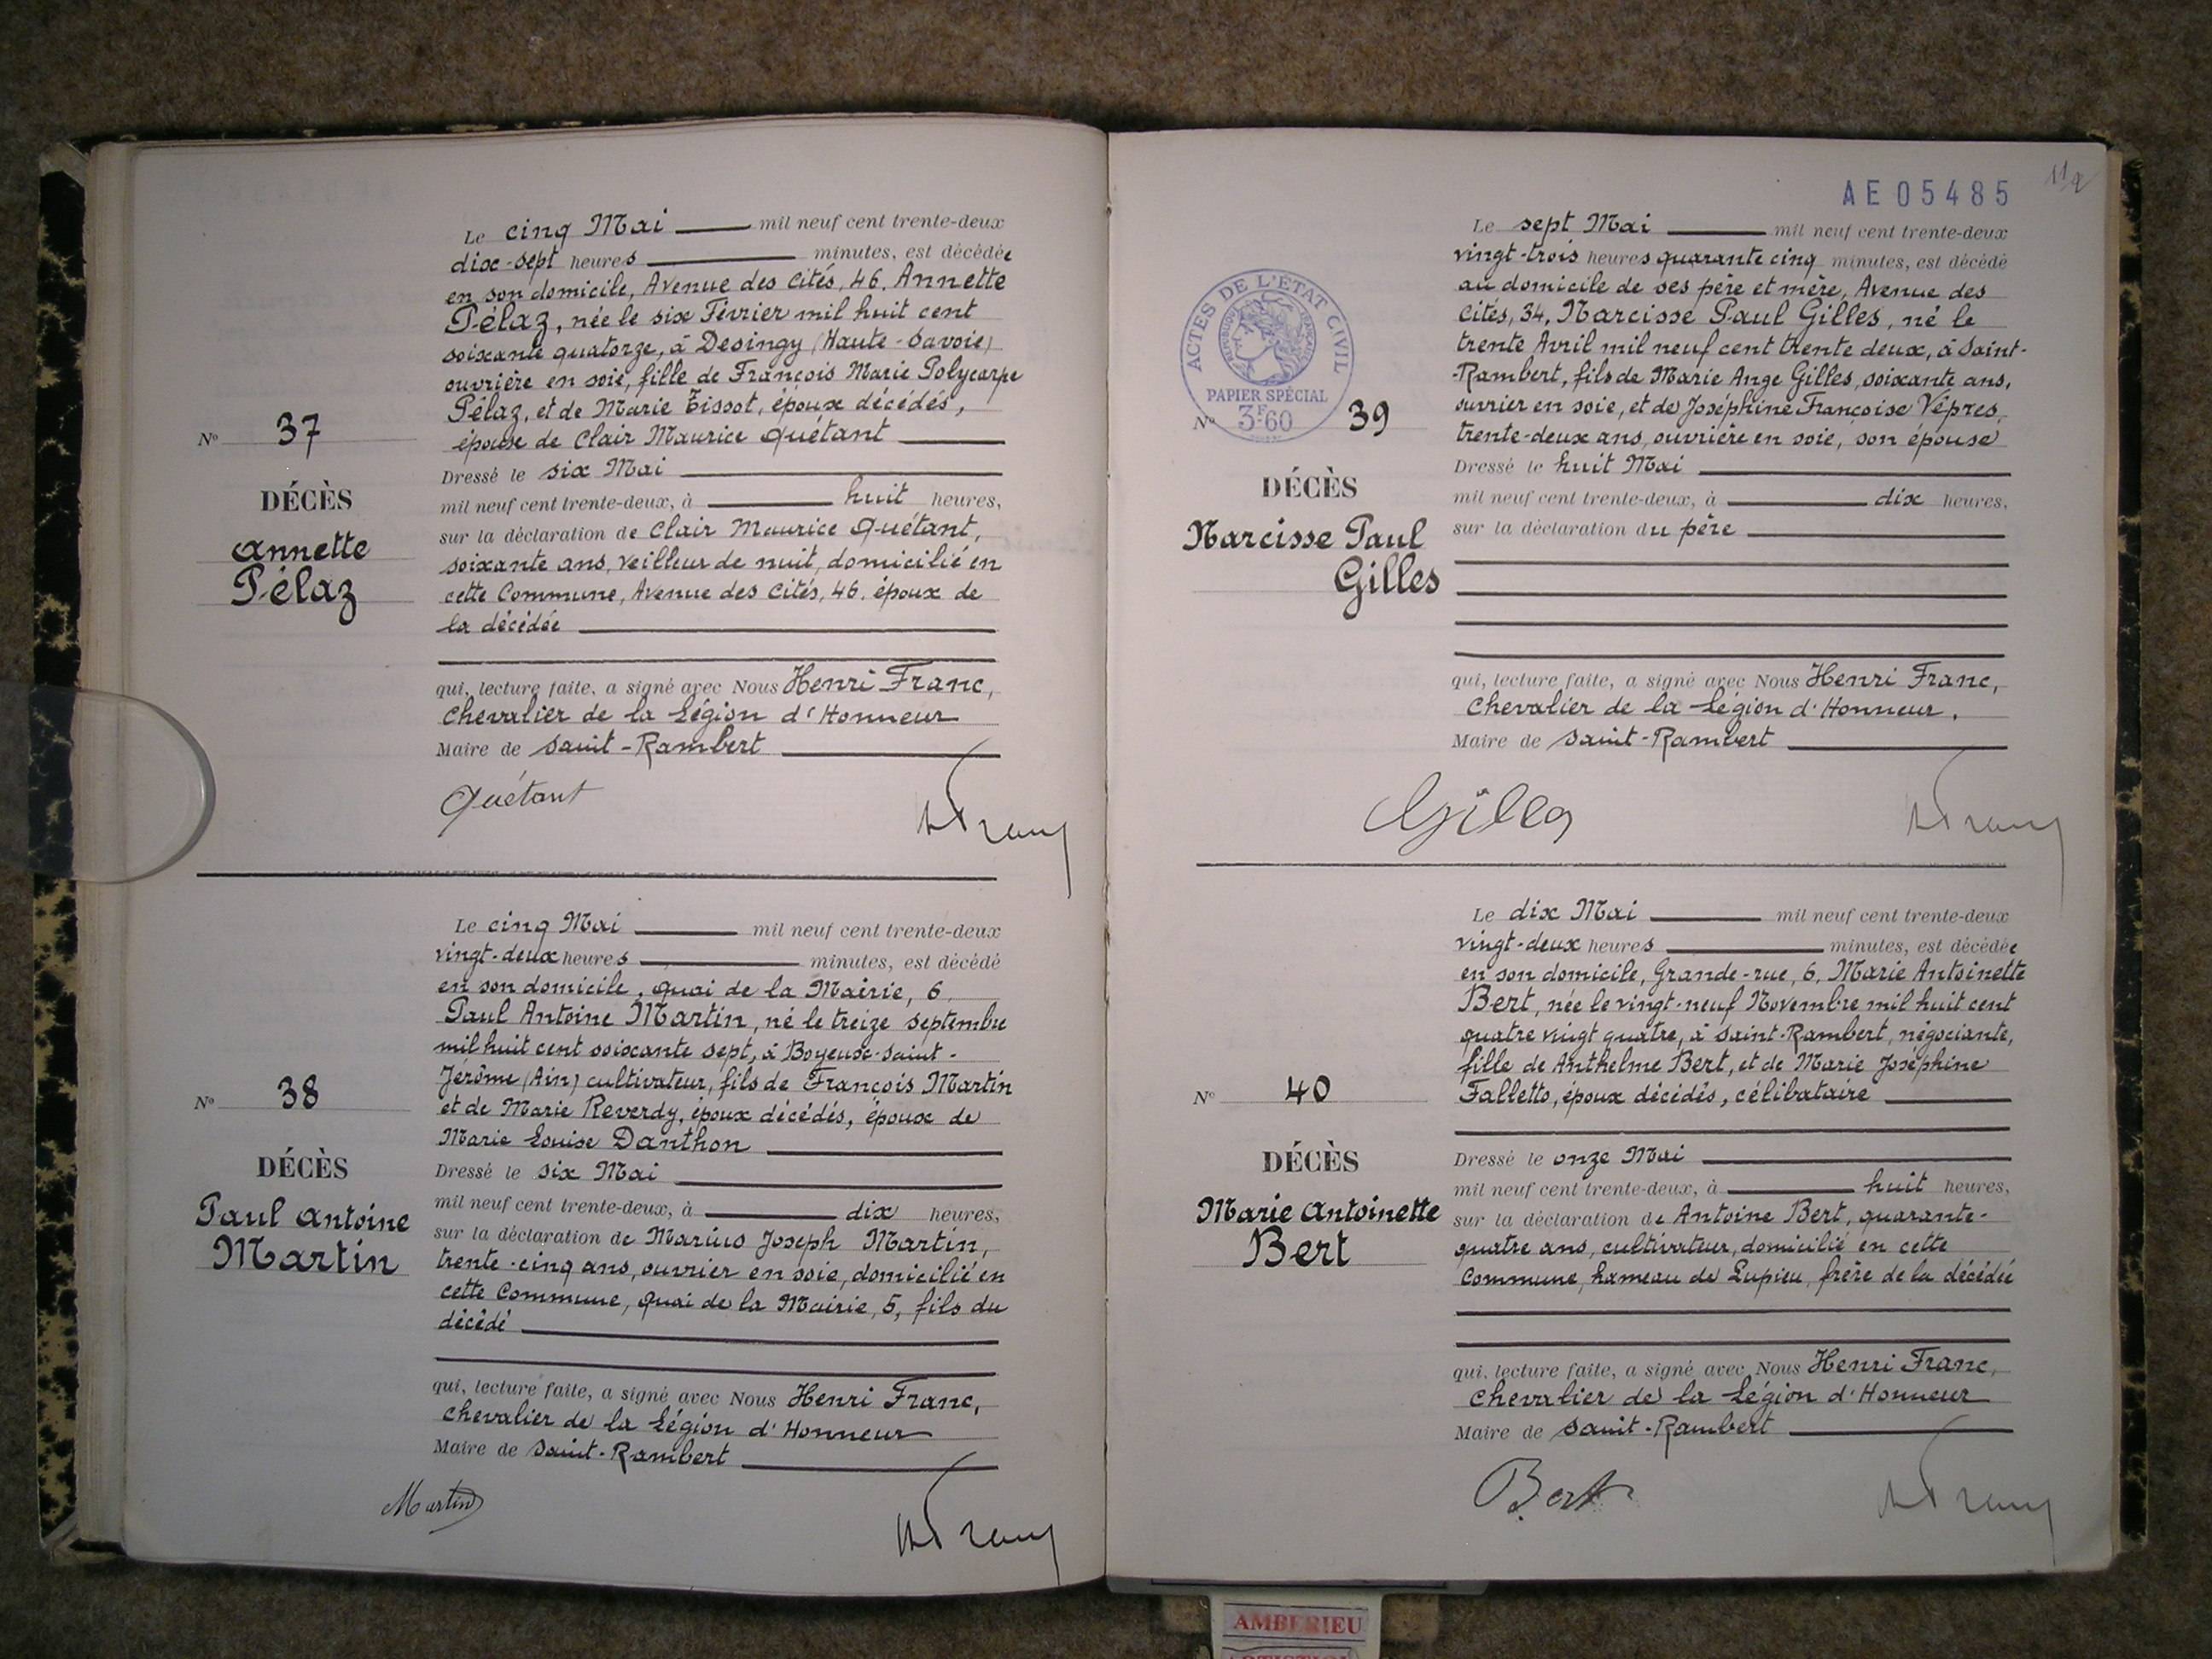 Le cinq Mai mil neuf cent trente-deux
dix-sept heures minutes, est décédée
en son domicile, Avenue des Cités, 46, Annette
Pélaz, née le six Février mil huit cent
soixante quatorze, à Desingy (Haute-Savoie)
ouvrière en soie, fille de François Marie Polycarpe
Pélaz, et de Marie Tissot, époux décédés,
épouse de Clair Maurice Quétant
Nº 37
Dressé le six Mai
DÉCÈS
mil neuf cent trente-deux, à huit heures,
Annette
Pélaz
sur la déclaration de Clair Maurice Quétant,
soixante ans, veilleur de nuit, domicilié en
cette Commune, Avenue des Cités, 46, époux de
la décédée
qui, lecture faite, a signé avec Nous Henri Franc,
Chevalier de la Légion d'Honneur
Maire de Saint-Rambert
Quétant
Le cinq Mai mil neuf cent trente-deux
vingt-deux heures minutes, est décédé
en son domicile, quai de la Mairie, 6,
Paul Antoine Martin, né le treize Septembre
mil huit cent soixante sept, à Boyeux-Saint-
Jérôme (Ain) cultivateur, fils de François Martin
et de Marie Reverdy, époux décédés, époux de
Marie Louise Danthon
Nº 38
Dressé le six Mai
DÉCÈS
mil neuf cent trente-deux, à dix heures,
Paul Antoine
Martin
sur la déclaration de Marius Joseph Martin,
trente-cinq ans, ouvrier en soie, domicilié en
cette Commune, quai de la Mairie, 5, fils du
décédé
qui, lecture faite, a signé avec Nous Henri Franc,
Chevalier de la Légion d'Honneur
Maire de Saint-Rambert
Martin
AE 05485
Le sept Mai mil neuf cent trente-deux
vingt-trois heures quarante cinq minutes, est décédé
au domicile de ses père et mère, Avenue des
Cités, 34, Narcisse Paul Gilles, né le
trente Avril mil neuf cent trente deux, à Saint-
-Rambert, fils de Marie Ange Gilles, soixante ans,
ouvrier en soie, et de Joséphine Françoise Vépres,
trente-deux ans, ouvrière en soie, son épouse
ACTES DE L'ÉTAT CIVIL
RÉPUBLIQUE FRANÇAISE
PAPIER SPÉCIAL
3F60
Nº 39
Dressé le huit Mai
DÉCÈS
mil neuf cent trente-deux, à dix heures,
Narcisse Paul
Gilles
sur la déclaration du père
qui, lecture faite, a signé avec Nous Henri Franc,
Chevalier de la Légion d'Honneur,
Maire de Saint-Rambert
Gilles
Le dix Mai mil neuf cent trente-deux
vingt-deux heures minutes, est décédée
en son domicile, Grande-rue, 6, Marie Antoinette
Bert, née le vingt-neuf Novembre mil huit cent
quatre vingt quatre, à Saint-Rambert, négociante,
fille de Anthelme Bert, et de Marie Joséphine
Falletto, époux décédés, célibataire
Nº 40
Dressé le onze Mai
DÉCÈS
mil neuf cent trente-deux, à huit heures,
Marie Antoinette
Bert
sur la déclaration de Antoine Bert, quarante-
quatre ans, cultivateur, domicilié en cette
Commune, hameau de Lupieu, frère de la décédée
qui, lecture faite, a signé avec Nous Henri Franc,
Chevalier de la Légion d'Honneur
Maire de Saint-Rambert
Bert
AMBERIEU